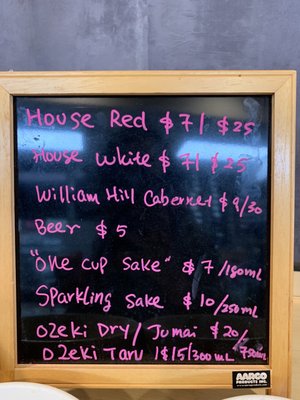 House Red $7/ $25
House white $7/ $25
William Hill Cabernet $9/30
Beer $5
"One cup sake" $7/180mL
Sparkling sake $10/250mL
Ozeki Dry/ Jumai $20/
Ozeki Taru 1$15/300mL 750mL
AARCO
PRODUCTS INC.